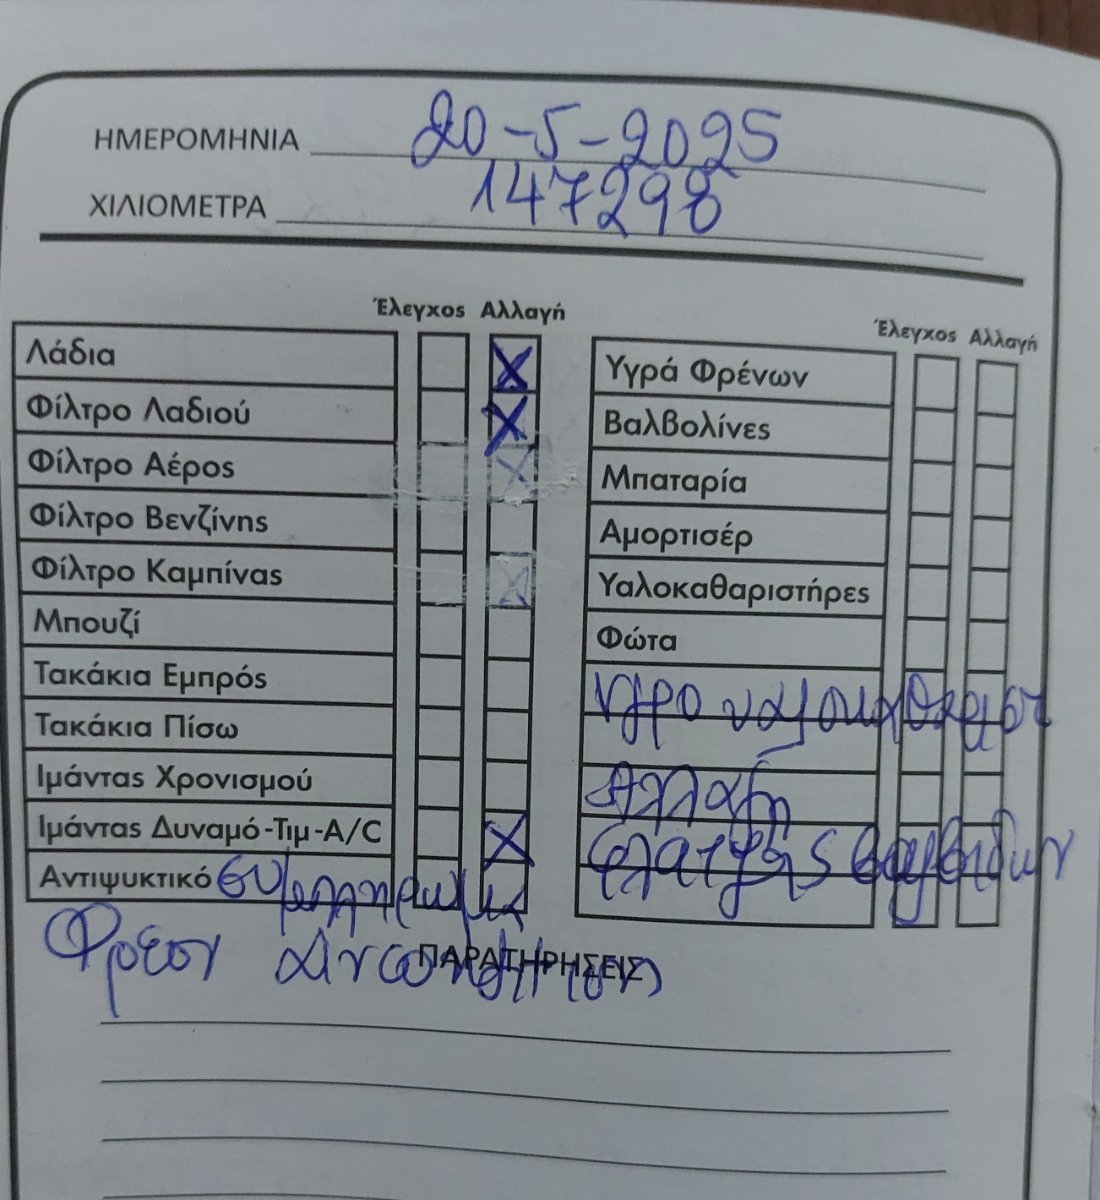 ΗΜΕΡΟΜΗΝΙΑ 20-5-2025
ΧΙΛΙΟΜΕΤΡΑ 147298
Έλεγχος Αλλαγή
Λάδια X
Φίλτρο Λαδιού X
Φίλτρο Αέρος X
Φίλτρο Βενζίνης
Φίλτρο Καμπίνας X
Μπουζί
Τακάκια Εμπρός
Τακάκια Πίσω
Ιμάντας Χρονισμού
Ιμάντας Δυναμό-Τιμ-A/C X
Αντιψυκτικό
Έλεγχος Αλλαγή
Υγρά Φρένων
Βαλβολίνες
Μπαταρία
Αμορτισέρ
Υαλοκαθαριστήρες
Φώτα
υγρο υαλοκαθαριστ
Αλλαγη
φλατζης βαλβιδων
Φρεον
ΠΑΡΑΤΗΡΗΣΕΙΣ